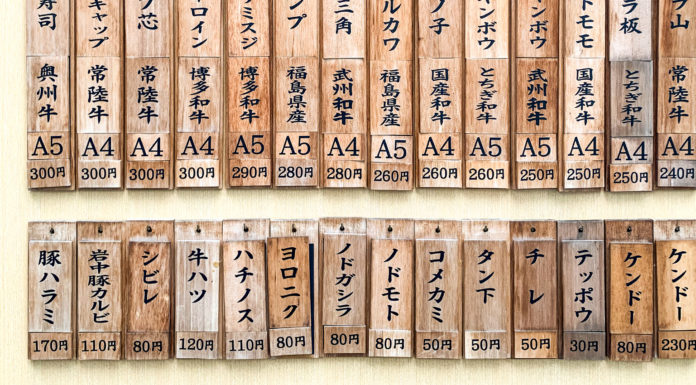 寿司
奥州牛
A5
300円
キャップ
常陸牛
A4
300円
ノ芯
常陸牛
A4
300円
ロイン
博多和牛
A4
300円
ミスジ
博多和牛
A5
290円
ンプ
福島県産
A5
280円
三角
武州和牛
A4
280円
ルカワ
福島県産
A5
260円
ノ子
国産和牛
A4
260円
ンボウ
とちぎ和牛
A5
260円
ンボウ
武州和牛
A5
250円
トモモ
国産和牛
A4
250円
ラ板
とちぎ和牛
A4
250円
山
常陸牛
A4
240円
豚ハラミ
170円
岩中豚カルビ
110円
シビレ
80円
牛ハツ
120円
ハチノス
110円
ヨロニク
80円
ノドガシラ
80円
ノドモト
80円
コメカミ
50円
タン下
50円
チレ
50円
テッポウ
30円
ケンドー
80円
ケンドー
230円